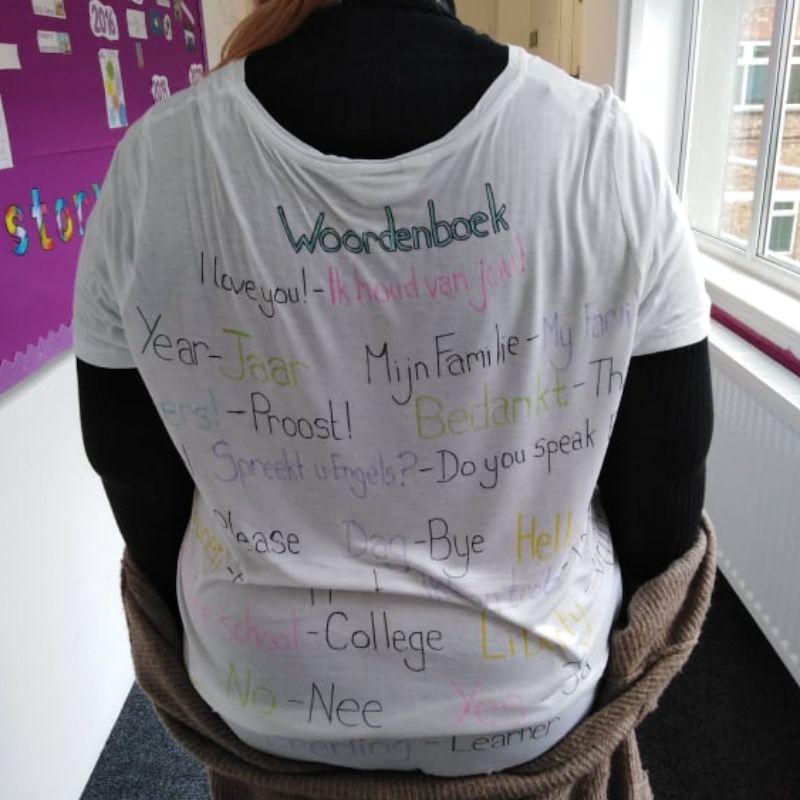 2016
Woordenboek
I love you! - Ik houd van jou!
Year - Jaar Mijn Familie - My Famil
ers! - Proost! Bedankt - Th
Spreekt u Engels? - Do you speak
Please Dag - Bye Hell
school - College Liberty
No - Nee Yes - Ja
Learner
stor